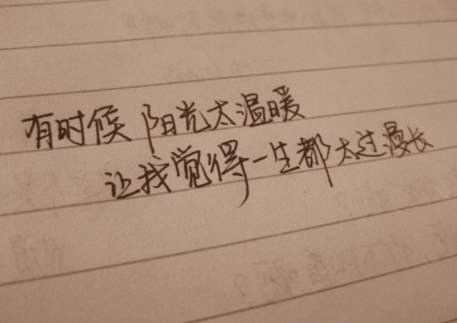 有时候 阳光太温暖
让我觉得一生都太过漫长